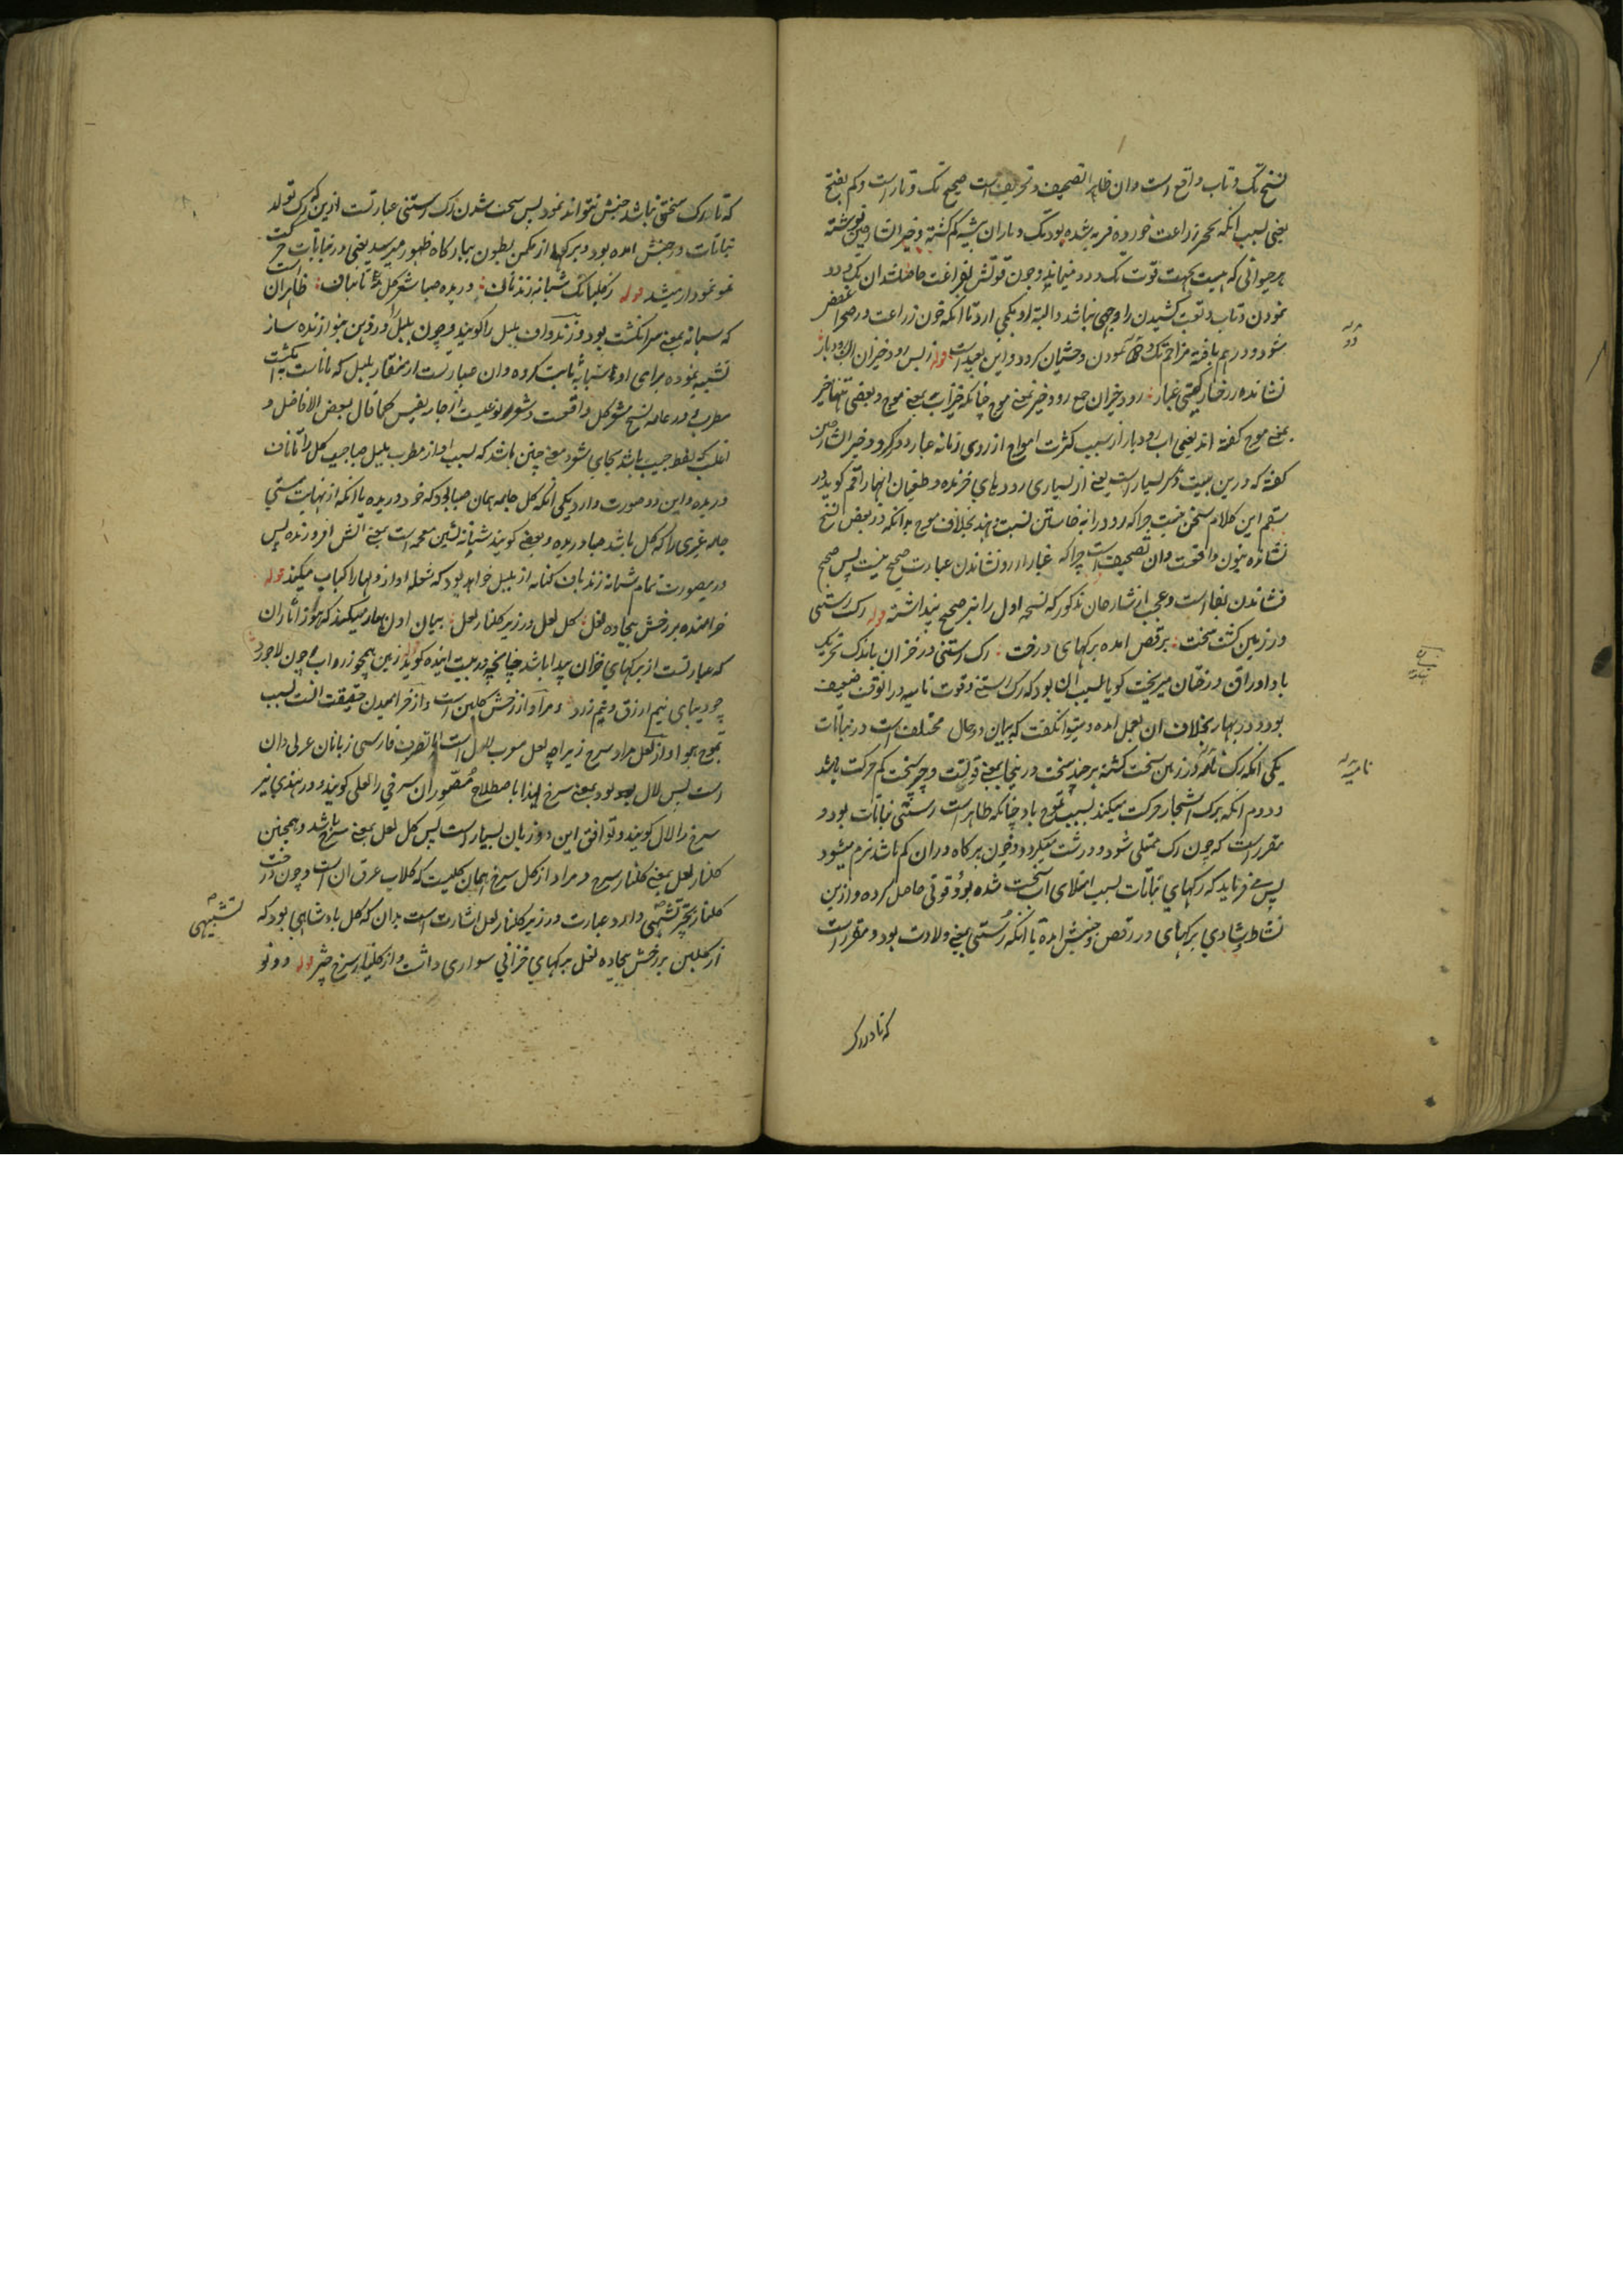 نسخ تک و تاب واقع است و ان ظاهرا تصحیف و تحریف است صحیح تک و تار است و کم بفتح
یعنی بسبب انکه بحر زراعت خورده فربه شده بود تک و باران بیشه کم کشته و خیر الشارحین نوشته
هر حیوانی که هست بجهت قوت تک و دو مینماید و چون قوتش بفراغت حاصل شد ان تک و دو
نمودن و تاب و تعب کشیدن را وجهی نباشد و البته او بکمی ارد تا انکه خون زراعت در صحرا
شود و درهم یافته مزاحم تک و نمودن وحشیان کردد و این بعید است قوله ز بس رود خیزان اب رودبار
نشانده ز رخسار کیتی غبار رود خیزان جمع رود خیز بمعنی موج چنانکه خیزاب بمعنی موج و بعضی تنها خیز
بمعنی موج کفته اند یعنی اب رودبار از سبب کثرت امواج از روی زمانه غبار دور کرد و خیر الشارحین
کفته که درین بیت ذکر بسیار است یعنی از بسیاری رودهای خیزنده و طغیان انها راقم کوید در
سقم این کلام سخن نیست چرا که رود را به خاستن نسبت ندهند بخلاف موج بدانکه در بعض نسخ
نشانده بنون واقعست و ان تصحیف است چرا که غبار از رو نشاندن عبارت صحیح نیست پس صحیح
فشاندن بفا است و عجب از شارحان مذکور که نسخه اول را نیز صحیح پنداشته قوله رک رستنی
در زمین کشت سخت برقص امده برکهای درخت رک رستنی در خزان باندک تحریک
باد اوراق درختان میریخت کویا بسبب ان بود که رک رستنی و قوت نامیه در انوقت ضعیف
بود و در بهار بخلاف ان بعمل امده و میتوان کفت که بیان دو حال مختلف است در نباتات
یکی انکه رک نامیه در زمین سخت کشته هر چند سخت درینجا بمعنی قویست و چیز سخت کم حرکت باشد
و دوم انکه برک اشجار حرکت میکند بسبب تموج باد چنانکه ظاهر است رستنی نباتات بود و
مقرر است که چون رک ممتلی شود درشت میکردد و چون هر کاه در ان کم باشد نرم میشود
پس میفرماید که رکهای نباتات بسبب امتلای اب سخت شده بود و قوتی حاصل کرده و ازین
نشاط و شادی برکهای در رقص و جنبش امده یا انکه رستنی بمعنی ولادت بود و مقرر است
که تا در رک
نامیه
که تا در رک سختی نباشد جنبش نتواند نمود پس سخت شدن رک رستنی عبارتست ازین که رک تولد
نباتات در جنبش امده بود و برکها از مکمن بطون ببارکاه ظهور میرسید یعنی در نباتات حرکت
نمو نمودار میشد قوله ز کلبانک شبانه زند باف دریده صبا شعر کل تا بناف ظاهر ان است
که سبابه بمعنی سر انکشت بود و زندواف بلبل را کویند و چون بلبل را در ذهن بنوازنده ساز
تشبیه نموده برای او سبابه ثابت کرده و ان عبارتست از منقار بلبل که مانا است به انکشت
مطرب و در عامه نسخ شعر کل واقعست و شعر نوعیست از جامه نفیس کما قال بعض الافاضل و
اغلب که لفظ جیب باشد بجای شعر و معنی چنین باشد که بسبب اواز مطرب بلبل صبا جیب کل را تا ناف
دریده و این دو صورت دارد یکی انکه کل جامه همان صبا بود که خود دریده یا انکه از نهایت مستی
جامه غیری را که کل باشد صبا دریده و بعضی کویند شبانه بشین معجمه است بمعنی اتش افروزنده پس
درین صورت تمام شبانه زند باف کنایه از بلبل خواهد بود که شعله اواز او دلها را کباب میکند قوله
خرامنده بر رخش بیجاده نعل کل لعل در زیر کلنار لعل بیان اول بهار میکند که هنوز اثار ان
که عبارتست از برکهای خزان پیدا باشد چنانچه در بیت اینده کوید زمین همچو زر و اب چون لاجورد
چو دیبای نیم ازرق و نیم زرد و مراد از رخش کلبن است و از خرامیدن حقیقت انست بسبب
تموج هوا و از لعل مراد سرخ زیرا چه لعل معرب لال است و تصرف فارسی زبانان عربی دان
است پس لال بود بمعنی سرخ لهذا باصطلاح مصوران سرخی را لعلی کویند و در هندی نیز
سرخ را لال کویند و توافق این دو زبان بسیار است پس کل لعل بمعنی سرخ باشد و همچنین
کلنار لعل بمعنی کلنار سرخ و مراد از کل سرخ همان کلیست که کلاب عرق ان است و چون درخت
کلنار بچتر تشبیهی دارد عبارت در زیر کلنار لعل اشارتست بدان که کل بادشاهی بود که
از کلبن بر رخش بیجاده نعل برکهای خزانی سواری داشت و از کلنار سرخ چتر قوله دو تو
تشبیهی